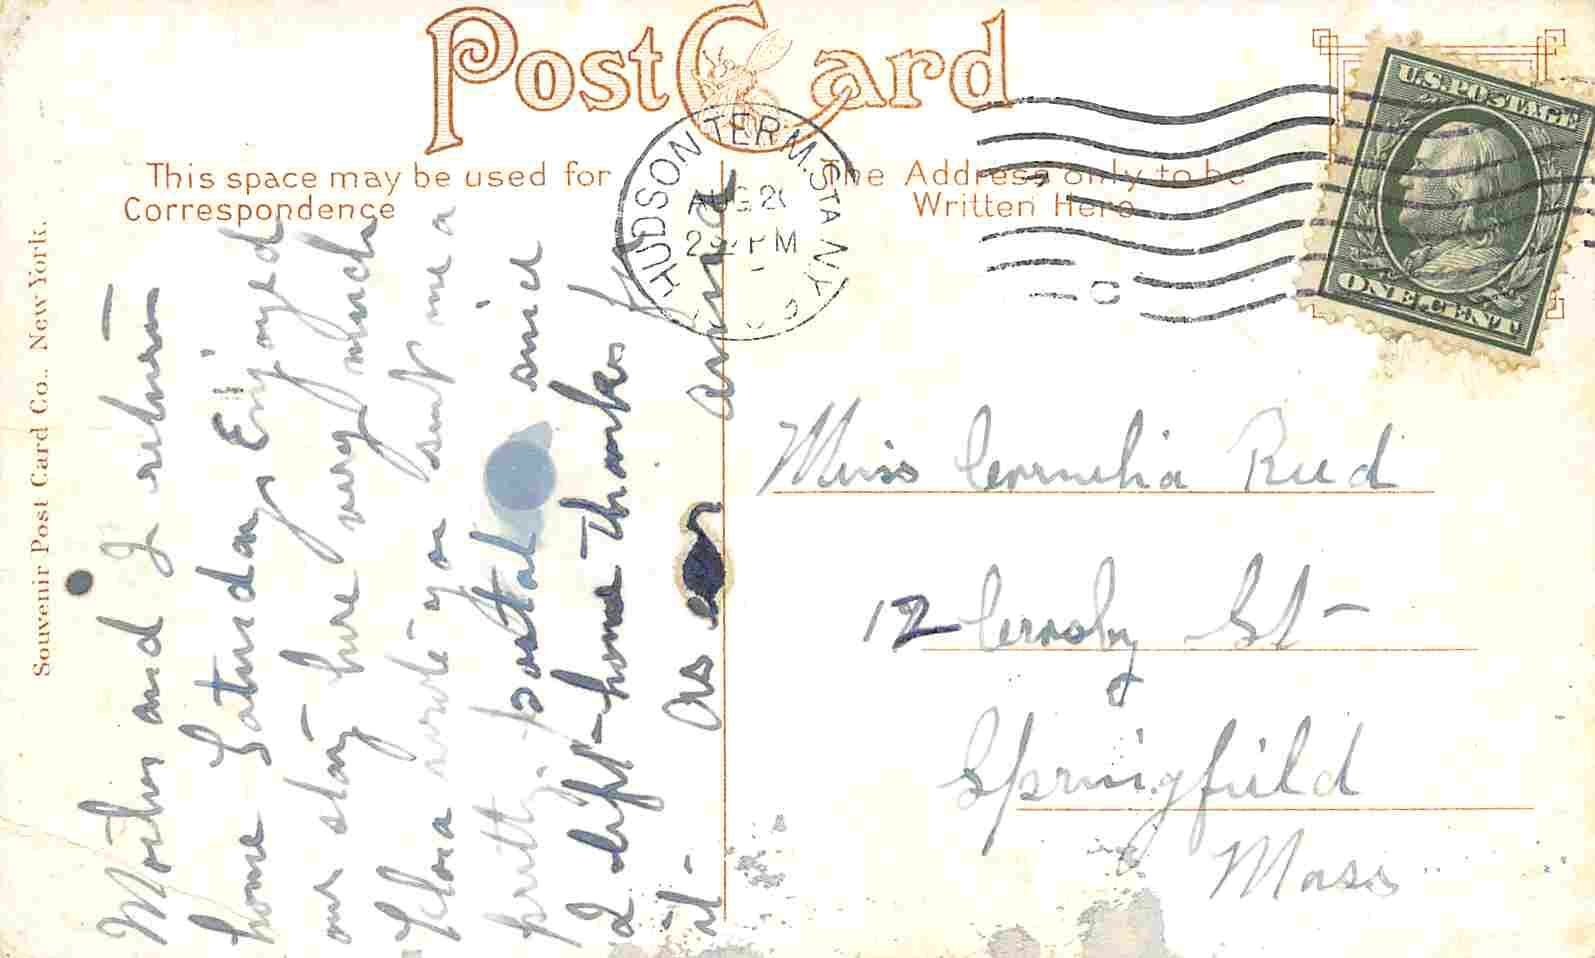 Post Card
This space may be used for
Correspondence
The Address only to be
Written Here
HUDSON TERM. STA. N.Y.
AUG 20
2 PM
U.S. POSTAGE
ONE CENT
Souvenir Post Card Co., New York.
Mother and I return
home Saturday Enjoyed
our stay here very much
Flora wrote you sent me a
pretty postal since
I left home Thanks for
it. As ever
Anna
Miss Cornelia Reed
12 Crosby St
Springfield
Mass